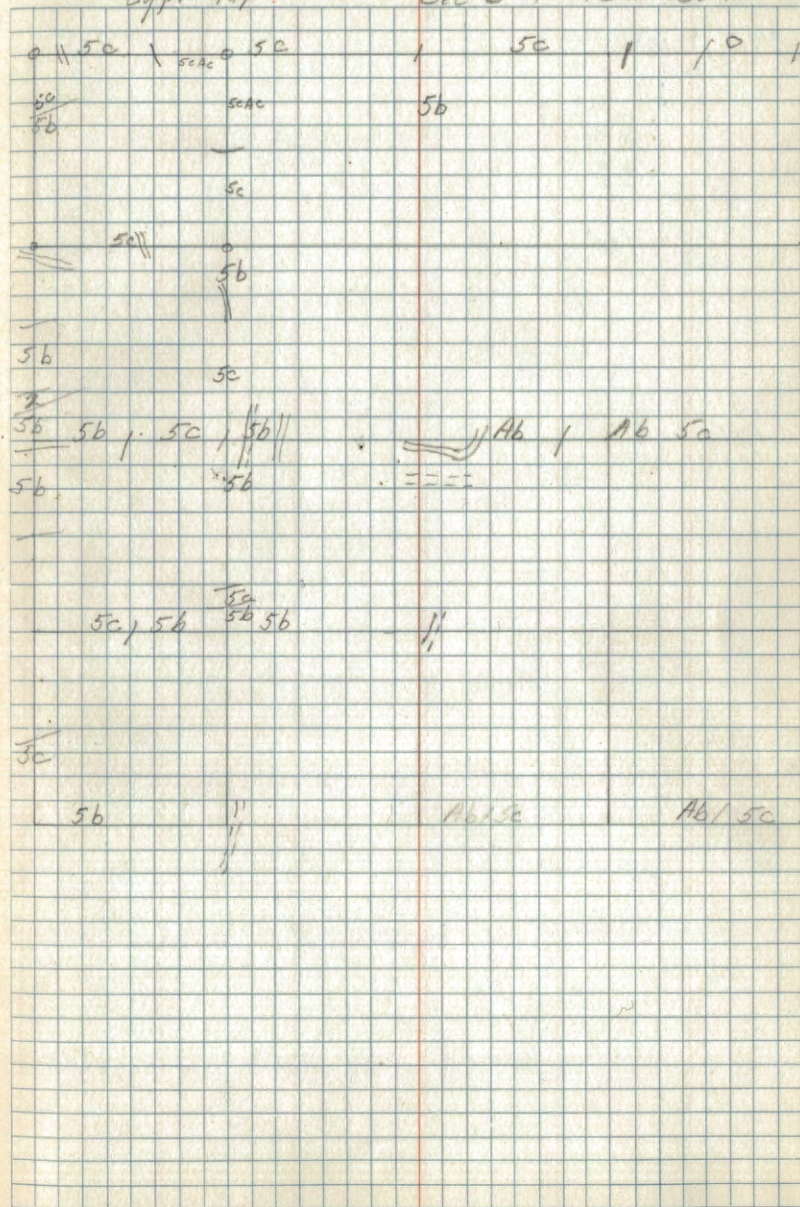 5c 5c 5c
5cAc
5c 5cAc 5b
5b
5c
5c
5b
5b
5c
5b 5b 5c 5b Ab Ab 5c
5b 5b
5c
5c / 5b 5b 5b
5c
5b Ab / 5c Ab / 5c